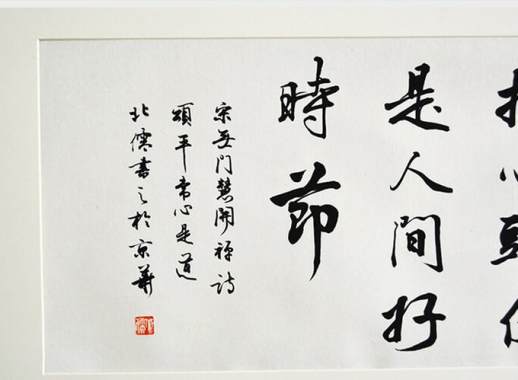 是人間好
時節
宋無門慧開禪詩
頌平常心是道
北儒書之於京華